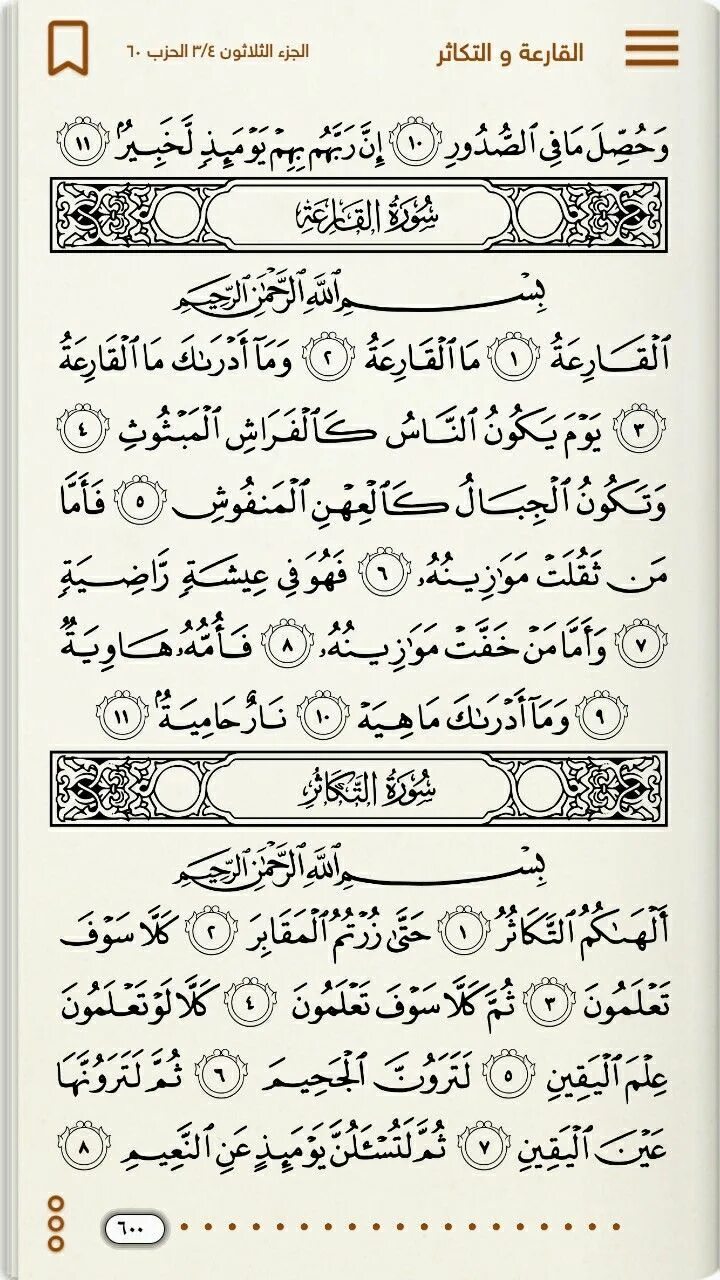 القارعة و التكاثر الجزء الثلاثون ٣/٤ الحزب ٦٠
وَحُصِّلَ مَا فِي ٱلصُّدُورِ ١٠ إِنَّ رَبَّهُم بِهِمۡ يَوۡمَئِذٖ لَّخَبِيرُۢ ١١
سُورَةُ القَارِعَةِ
بِسۡمِ ٱللَّهِ ٱلرَّحۡمَٰنِ ٱلرَّحِيمِ
ٱلۡقَارِعَةُ ١ مَا ٱلۡقَارِعَةُ ٢ وَمَآ أَدۡرَىٰكَ مَا ٱلۡقَارِعَةُ
٣ يَوۡمَ يَكُونُ ٱلنَّاسُ كَٱلۡفَرَاشِ ٱلۡمَبۡثُوثِ ٤
وَتَكُونُ ٱلۡجِبَالُ كَٱلۡعِهۡنِ ٱلۡمَنفُوشِ ٥ فَأَمَّا
مَن ثَقُلَتۡ مَوَٰزِينُهُۥ ٦ فَهُوَ فِي عِيشَةٖ رَّاضِيَةٖ
٧ وَأَمَّا مَنۡ خَفَّتۡ مَوَٰزِينُهُۥ ٨ فَأُمُّهُۥ هَاوِيَةٞ
٩ وَمَآ أَدۡرَىٰكَ مَا هِيَهۡ ١٠ نَارٌ حَامِيَةُۢ ١١
سُورَةُ التَّكَاثُرِ
بِسۡمِ ٱللَّهِ ٱلرَّحۡمَٰنِ ٱلرَّحِيمِ
أَلۡهَىٰكُمُ ٱلتَّكَاثُرُ ١ حَتَّىٰ زُرۡتُمُ ٱلۡمَقَابِرَ ٢ كَلَّا سَوۡفَ
تَعۡلَمُونَ ٣ ثُمَّ كَلَّا سَوۡفَ تَعۡلَمُونَ ٤ كَلَّا لَوۡ تَعۡلَمُونَ
عِلۡمَ ٱلۡيَقِينِ ٥ لَتَرَوُنَّ ٱلۡجَحِيمَ ٦ ثُمَّ لَتَرَوُنَّهَا
عَيۡنَ ٱلۡيَقِينِ ٧ ثُمَّ لَتُسۡـَٔلُنَّ يَوۡمَئِذٍ عَنِ ٱلنَّعِيمِ ٨
٦٠٠